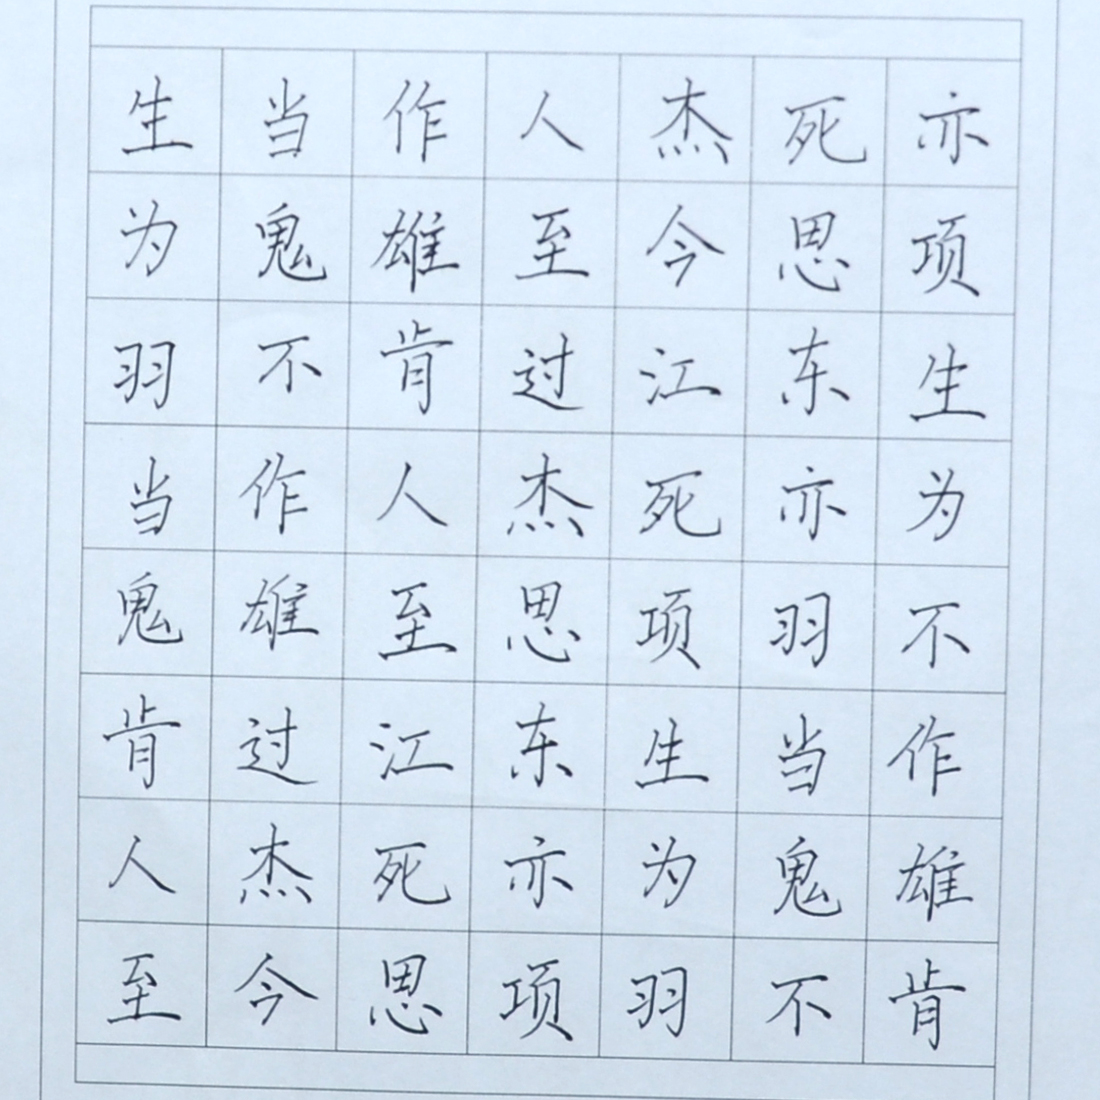 生当作人杰死亦
为鬼雄至今思项
羽不肯过江东生
当作人杰死亦为
鬼雄至思项羽不
肯过江东生当作
人杰死亦为鬼雄
至今思项羽不肯